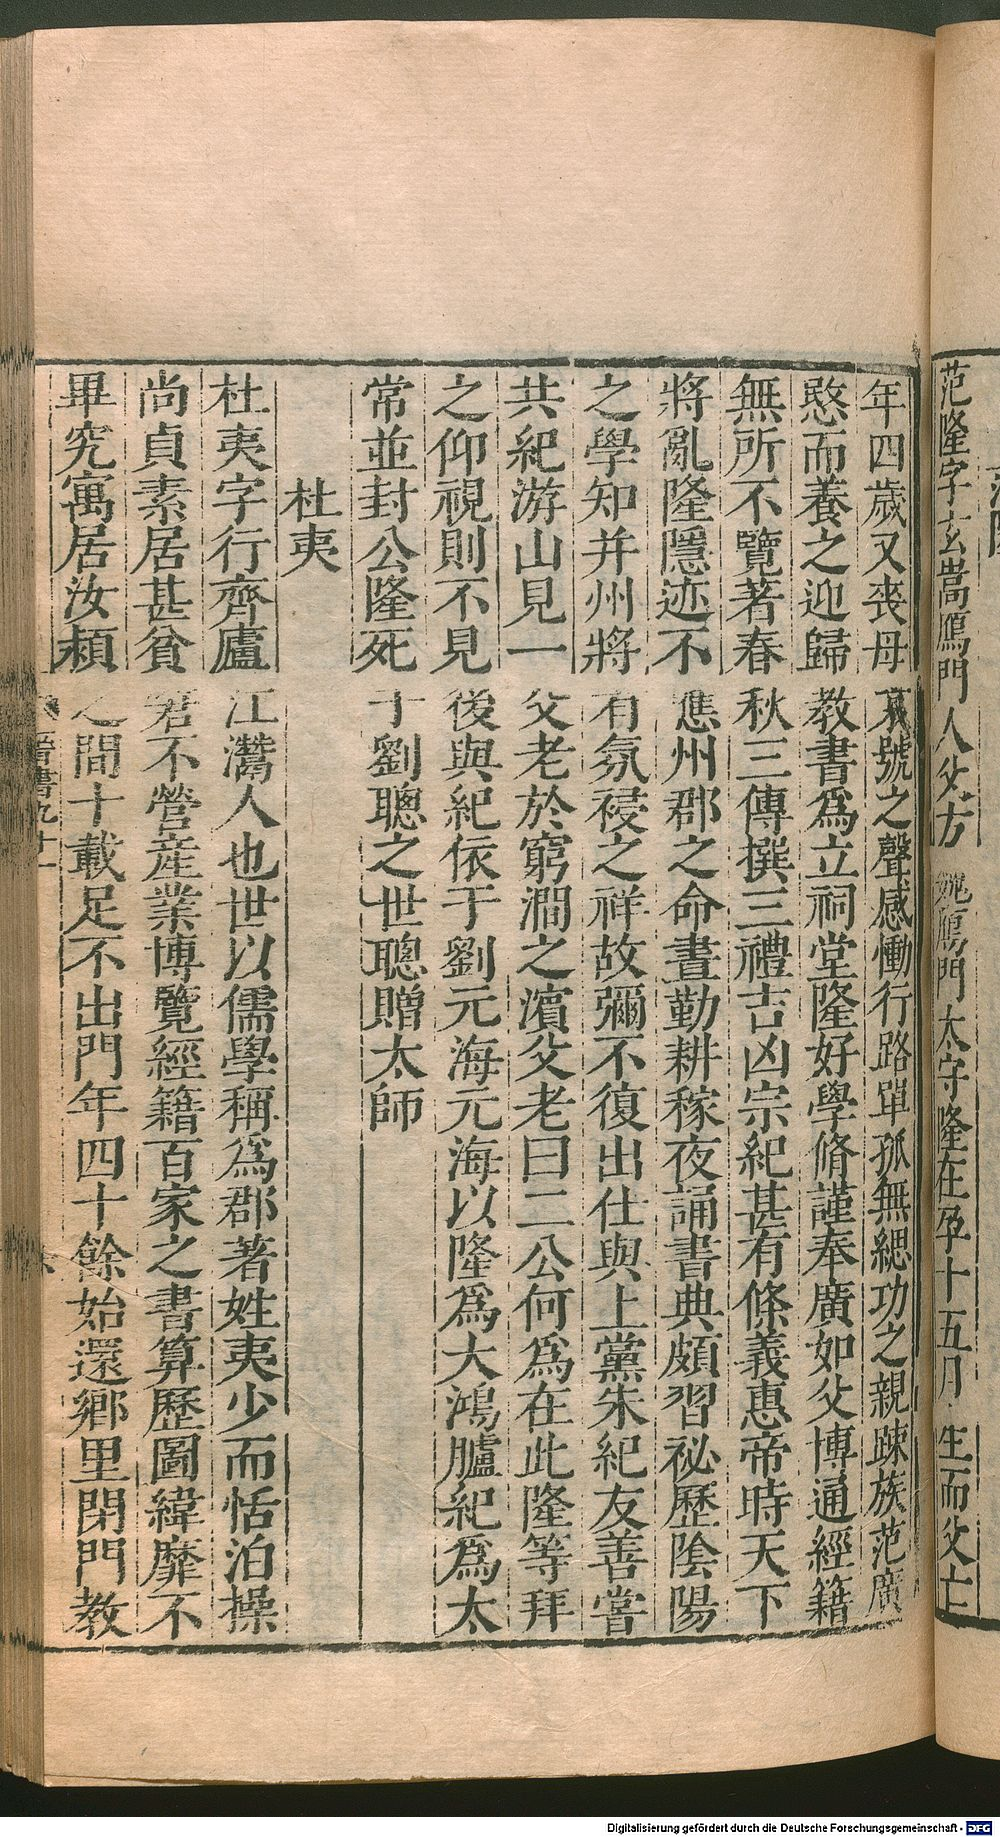 范隆
范隆字玄嵩鴈門人父方魏鴈門太守隆在孕十五月生而父亡
年四歲又喪母哀號之聲感慟行路單孤無緦功之親疎族范廣
愍而養之迎歸教書爲立祠堂隆好學脩謹奉廣如父博通經籍
無所不覽著春秋三傳撰三禮吉凶宗紀甚有條義惠帝時天下
將亂隆隱迹不應州郡之命晝勤耕稼夜誦書典頗習祕歷陰陽
之學知并州將有氛祲之祥故彌不復出仕與上黨朱紀友善嘗
共紀游山見一父老於窮澗之濱父老曰二公何爲在此隆等拜
之仰視則不見後與紀依于劉元海元海以隆爲大鴻臚紀爲太
常並封公隆死于劉聰之世聰贈太師
杜夷
杜夷字行齊廬江灊人也世以儒學稱爲郡著姓夷少而恬泊操
尚貞素居甚貧窘不營産業博覽經籍百家之書算歷圖緯靡不
畢究寓居汝潁之間十載足不出門年四十餘始還鄉里閉門教
晉書九十一
Digitalisierung gefördert durch die Deutsche Forschungsgemeinschaft - DFG